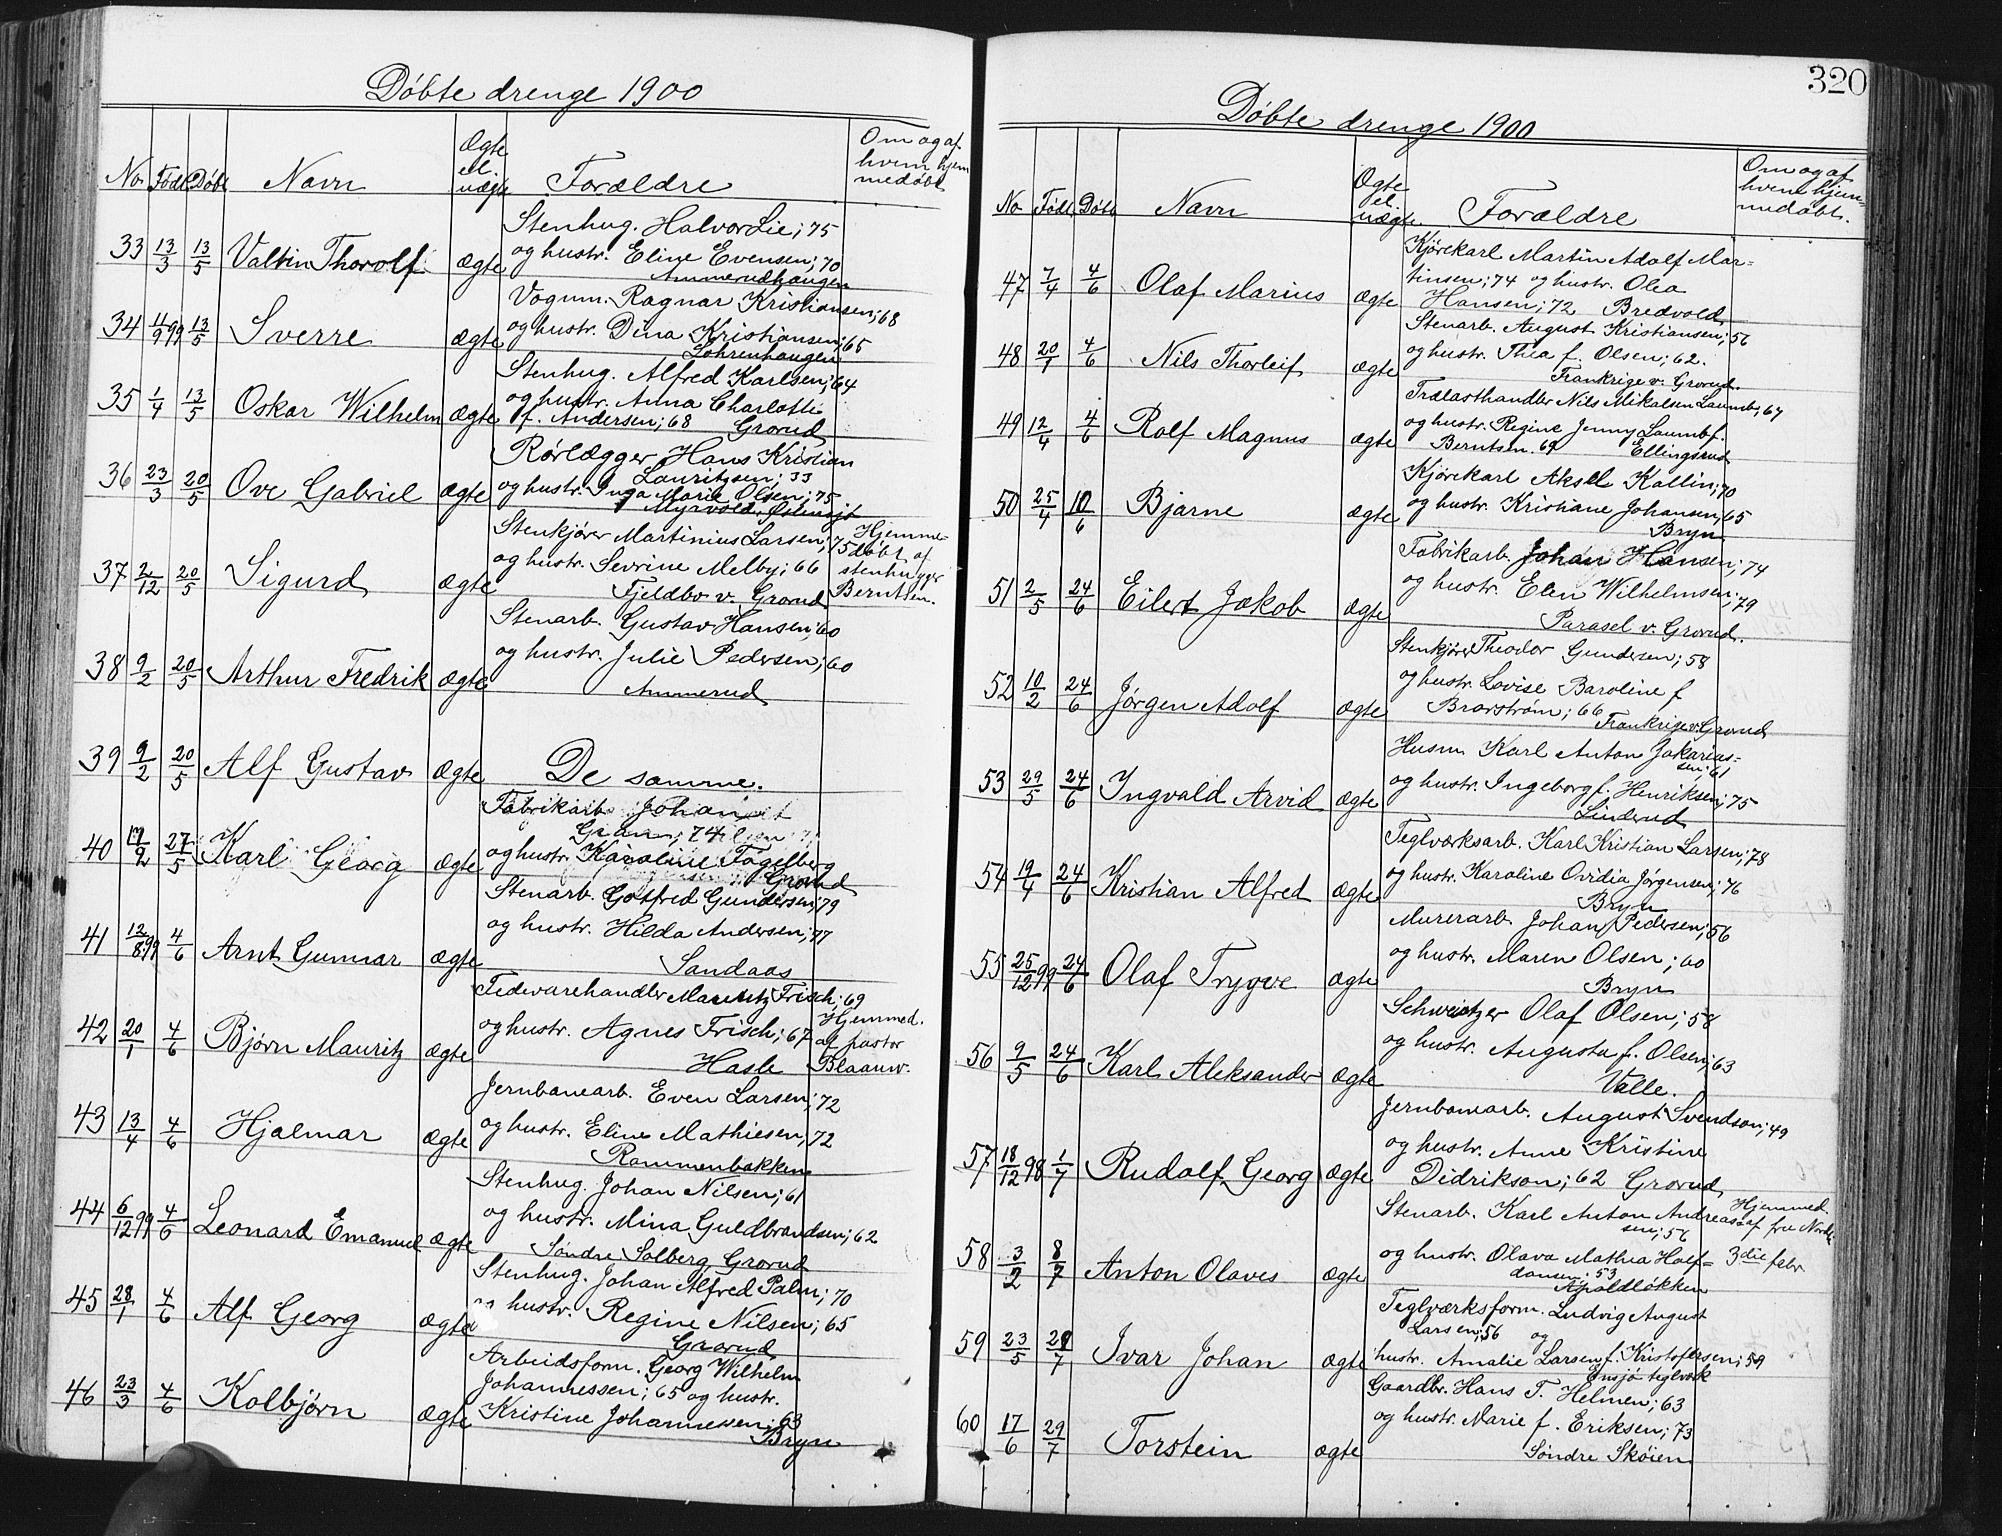 Døbte drenge 1900
No Født Døbt Navn Ægte el. uægte Forældre Om og af hvem hjemmedøbt
33 13/3 13/5 Valtin Thorolf ægte Stenhug. Halvor Lie; 75
og hustr. Eline Evensen; 70
Ammerudhaugen
34 11/9 99 13/5 Sverre ægte Vognm. Ragnar Kristiansen; 68
og hustr. Dina Kristiansen; 65
Lohrenhaugen
35 1/4 13/5 Oskar Wilhelm ægte Stenhug. Alfred Karlsen; 64
og hustr. Anna Charlotte
f. Andersen; 68 Grorud
36 23/3 20/5 Ove Gabriel ægte Rørlægger Hans Kristian
Lauritzsen; 33
og hustr. Inga Marie Olsen; 75
Myrvold, Østensjt
37 2/12 20/5 Sigurd ægte Stenkjører Martinius Larsen; 75
og hustr. Sevrine Melby; 66
Fjeldbo v. Grorud
Hjemme-
døbt af
stenhugger
Berntsen.
38 9/2 20/5 Arthur Fredrik ægte Stenarb. Gustav Hansen; 60
og hustr. Julie Pedersen; 60
Ammerud
39 9/2 20/5 Alf Gustav ægte De samme.
40 17/2 27/5 Karl Georg ægte Fabrikarb. Johan
Gran; 74
og hustr. Karoline Fagelberg
Grorud
41 12/8 99 4/6 Arnt Gunnar ægte Stenarb. Gotfred Gundersen; 79
og hustr. Hilda Andersen; 77
Sandaas
42 20/1 4/6 Bjørn Mauritz ægte Fedevarehandler Mauritz Frisch; 69
og hustr. Agnes Frisch; 67
Hasle
Hjemmed.
af pastor
Blaauw.
43 13/4 4/6 Hjalmar ægte Jernbanearb. Even Larsen; 72
og hustr. Eline Mathiesen, 72
Rammenbakken
44 6/12 99 4/6 Leonard Emanuel ægte Stenhug. Johan Nilsen; 61
og hustr. Mina Guldbrandsen; 62
Søndre Solberg, Grorud
45 28/1 4/6 Alf Georg ægte Stenhug. Johan Alfred Palm; 70
og hustr. Regine Nilsen; 65
Grorud
46 23/3 4/6 Kolbjørn ægte Arbeidsform. Georg Wilhelm
Johannessen; 65 og hustr.
Kristine Johannessen; 63
Bryn
320
Døbte drenge 1900
No Født Døbt Navn Ægte el. uægte Forældre Om og af hvem hjemmedøbt.
47 7/4 4/6 Olaf Marius ægte Kjørekarl Martin Adolf Mar-
tinsen; 74 og hustr. Olea
Hansen; 72 Bredvold
48 20/1 4/6 Nils Thorleif ægte Stenarb. August Kristiansen; 56
og hustr. Thea f. Olsen; 62.
Frankrige v. Grorud.
49 12/4 4/6 Rolf Magnus ægte Trælasthandler Nils Mikalsen Laumb, 67
og hustr. Regine Jenny Laumb f.
Berntsen. 69 Ellingsrud
50 25/4 10/6 Bjarne ægte Kjørekarl Aksel Kallin; 70
og hustr. Kristiane Johansen; 65
Bryn
51 2/5 24/6 Eilert Jakob ægte Fabrikarb. Johan Hansen; 74
og hustr. Elen Wilhelmsen; 79
Parasel v. Grorud.
52 10/2 24/6 Jørgen Adolf ægte Stenkjører Theodor Gundersen; 58
og hustr. Lovise Baroline f
Brorstrøm; 66 Frankrige v. Grorud
53 29/5 24/6 Ingvald Arvid ægte Husm. Karl Anton Zakarias-
sen; 61
og hustr. Ingeborg f. Henriksen; 75
Linderud
54 19/4 24/6 Kristian Alfred ægte Teglværksarb. Karl Kristian Larsen; 78
og hustr. Karoline Ovidia Jørgensen; 76
Bryn
55 25/12 99 24/6 Olaf Trygve ægte Murerarb. Johan Pedersen; 56
og hustr. Maren Olsen; 60
Bryn
56 9/5 24/6 Karl Aleksander ægte Schweitzer Olaf Olsen; 58
og hustr. Augusta f. Olsen; 63
Valle.
57 18/12 98 1/7 Rudolf Georg ægte Jernbanearb. August Svendson; 49
og hustr. Anne Kristine
Didrikson; 62 Grorud
58 3/2 8/7 Anton Olaves ægte Stenarb. Karl Anton Andreas-
sen; 56
og hustr. Olava Mathia Half-
dansen; 53
Apaldløkken
Hjemmed.
af fru Nordli
3die febr
59 23/5 29/7 Ivar Johan ægte Teglværksform. Ludvig August
Larsen; 56 og
hustr. Amalie Larsen f. Kristofersen; 59
Ensjø teglværk
60 17/6 29/7 Torstein ægte Gaardbr. Hans T. Helmen; 63
og hustr. Marie f. Eriksen; 73
Søndre Skøien